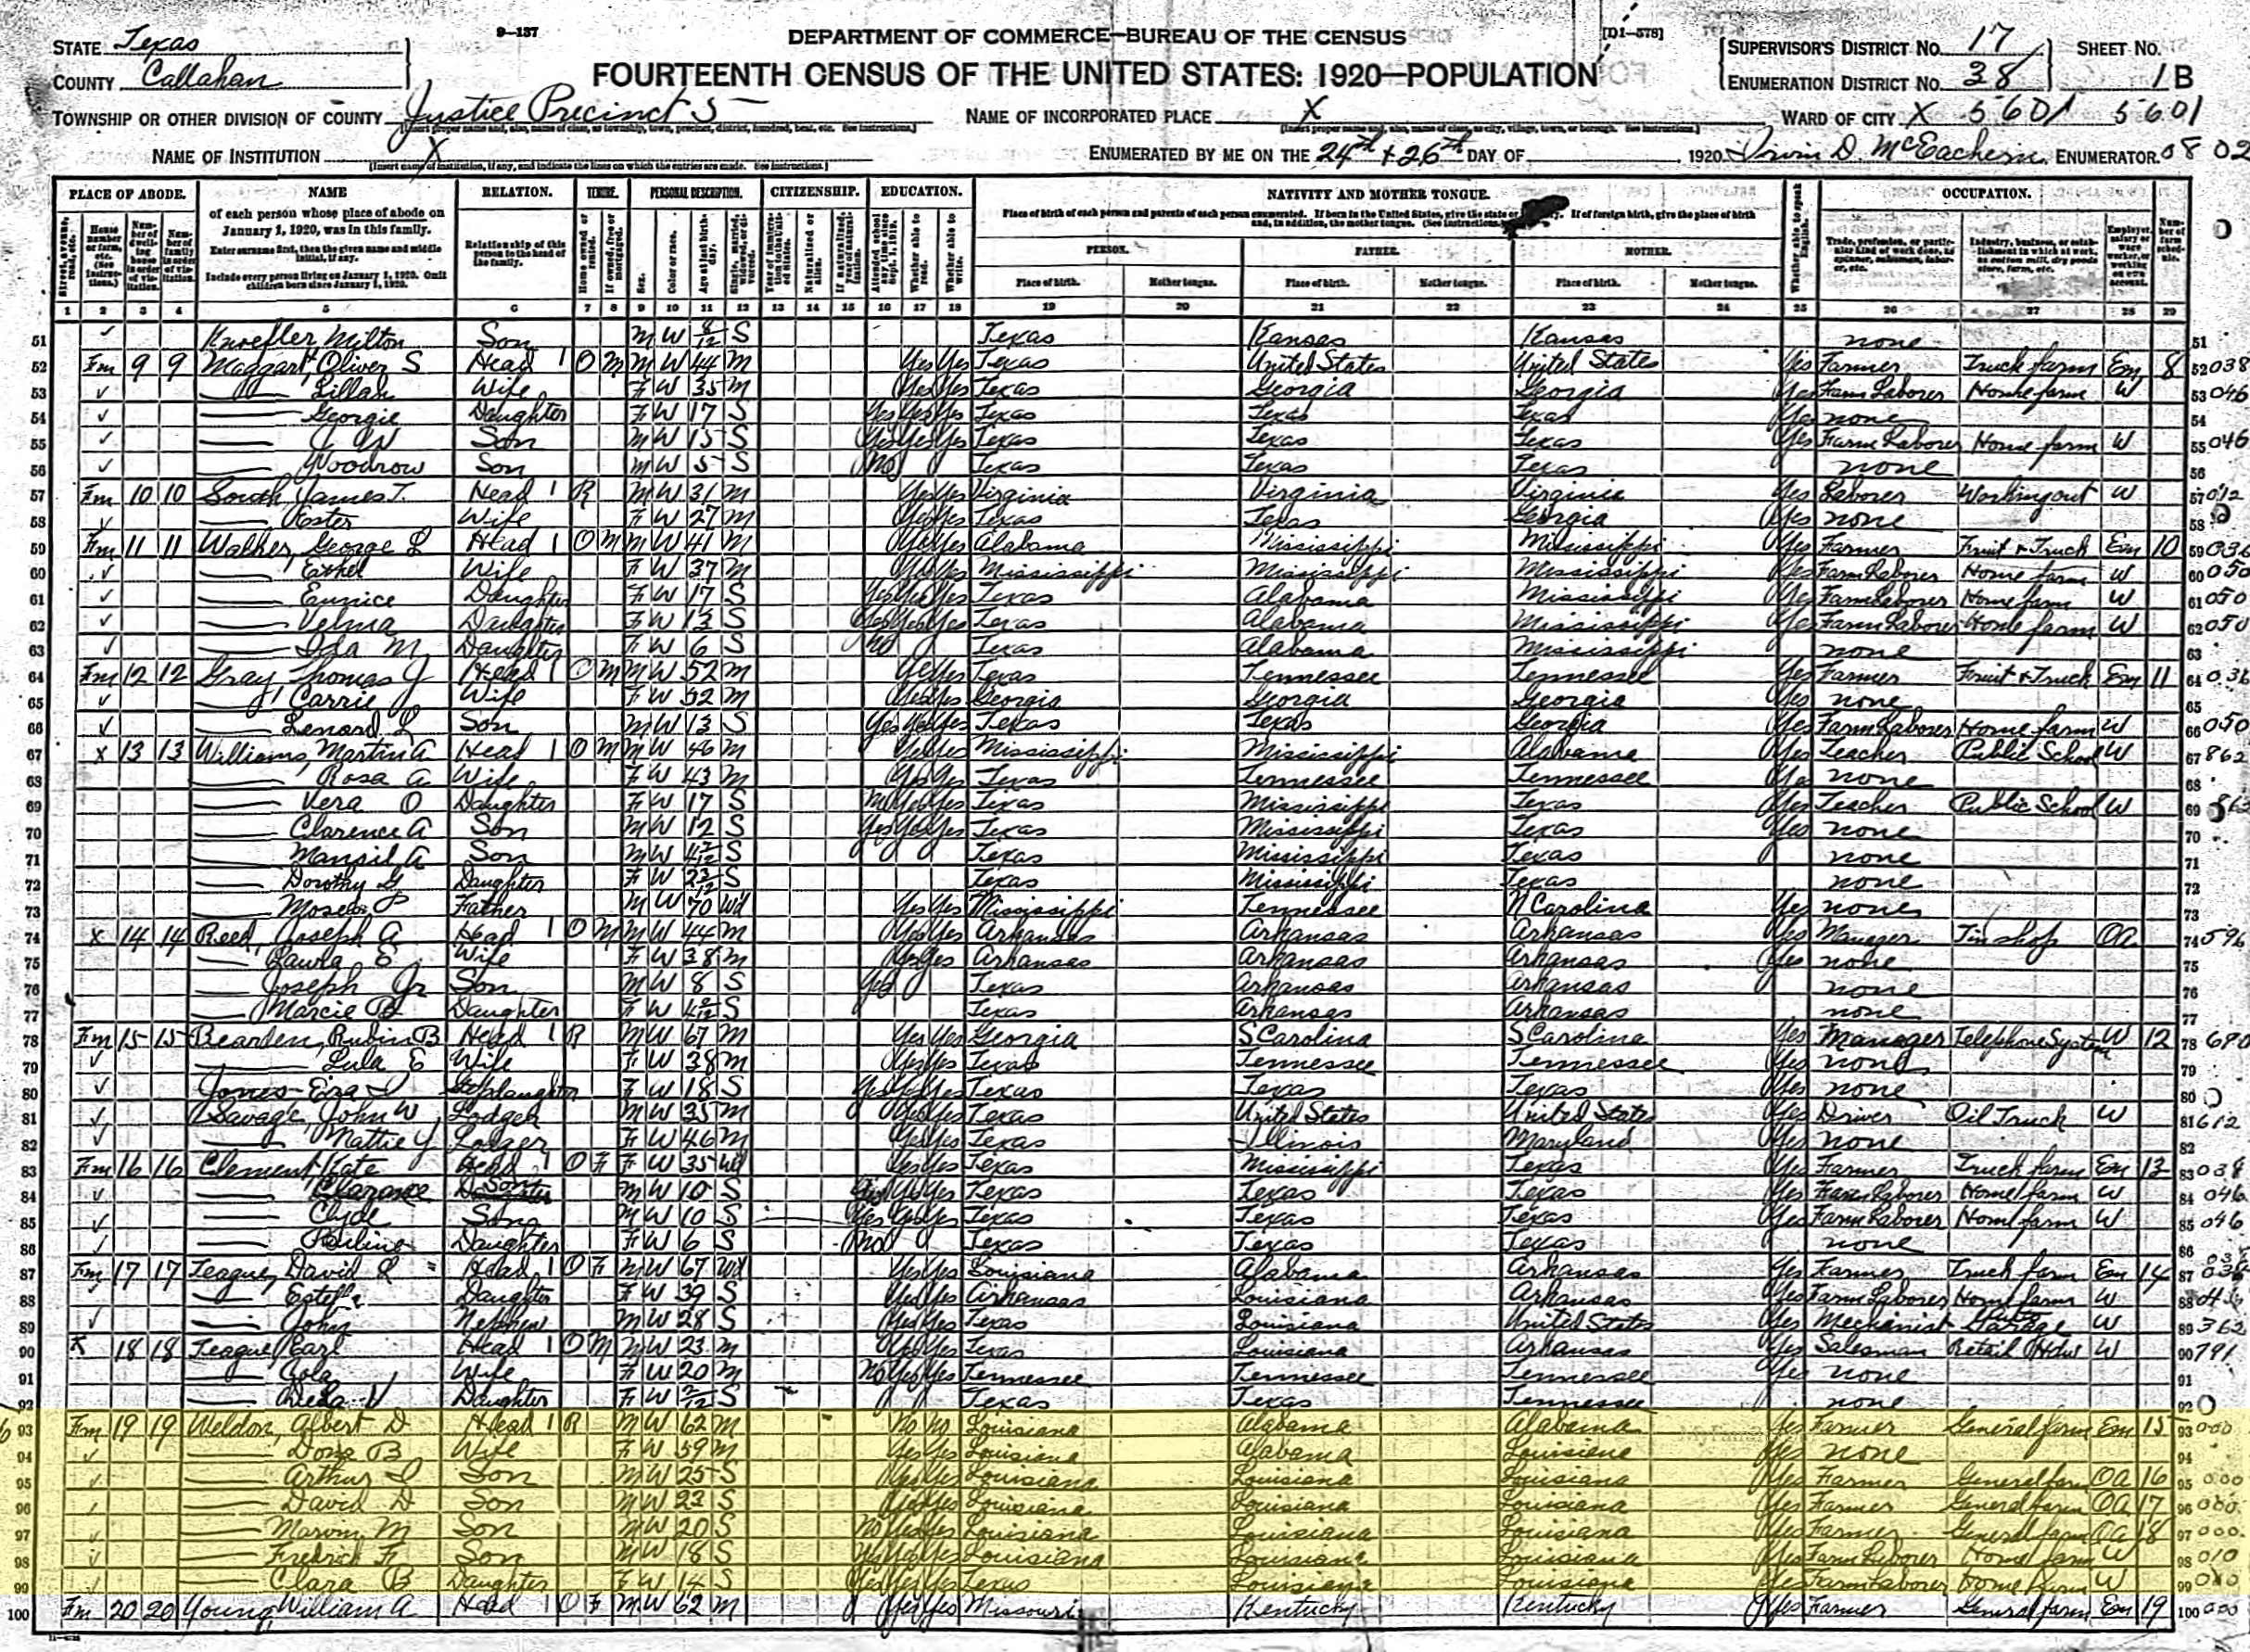 9—137
DEPARTMENT OF COMMERCE—BUREAU OF THE CENSUS
[D1—578]
STATE Texas
COUNTY Callahan
FOURTEENTH CENSUS OF THE UNITED STATES: 1920—POPULATION
SUPERVISOR'S DISTRICT No. 17 SHEET No.
ENUMERATION DISTRICT No. 38 1 B
TOWNSHIP OR OTHER DIVISION OF COUNTY Justice Precinct 5 NAME OF INCORPORATED PLACE X WARD OF CITY X 5601 5601
NAME OF INSTITUTION X ENUMERATED BY ME ON THE 24th + 26th DAY OF , 1920. Irvin D. McEachern, ENUMERATOR. 08 02
PLACE OF ABODE. NAME RELATION. TENURE. PERSONAL DESCRIPTION. CITIZENSHIP. EDUCATION. NATIVITY AND MOTHER TONGUE. OCCUPATION.
of each person whose place of abode on January 1, 1920, was in this family.
Enter surname first, then the given name and middle initial, if any.
Include every person living on January 1, 1920. Omit children born since January 1, 1920.
Relationship of this person to the head of the family.
PERSON. FATHER. MOTHER.
Place of birth. Mother tongue. Place of birth. Mother tongue. Place of birth. Mother tongue.
1 2 3 4 5 6 7 8 9 10 11 12 13 14 15 16 17 18 19 20 21 22 23 24 25 26 27 28 29
51 Knoefler, Milton Son M W 8/12 S Texas Kansas Kansas none 51
52 Fm 9 9 Maggart, Oliver S Head 1 O M M W 44 M Yes Yes Texas United States United States Yes Farmer Truck farm Em 8 52 038
53 Lillah Wife F W 35 M Yes Yes Texas Georgia Georgia Yes Farm Laborer Home farm W 53 046
54 Georgie Daughter F W 17 S Yes Yes Yes Texas Texas Texas Yes none 54
55 J W Son M W 15 S Yes Yes Yes Texas Texas Texas Yes Farm Laborer Home farm W 55 046
56 Woodrow Son M W 5 S No Texas Texas Texas none 56
57 Fm 10 10 South, James T. Head 1 R M W 31 M Yes Yes Virginia Virginia Virginia Yes Laborer Working out W 57 012
58 Ester Wife F W 27 M Yes Yes Texas Texas Georgia Yes none 58
59 Fm 11 11 Walker, George L Head 1 O M M W 41 M Yes Yes Alabama Mississippi Mississippi Yes Farmer Fruit + Truck Em 10 59
60 Ethel Wife F W 37 M Yes Yes Mississippi Mississippi Mississippi Yes Farm Laborer Home farm W 60 050
61 Eunice Daughter F W 17 S Yes Yes Yes Texas Alabama Mississippi Yes Farm Laborer Home farm W 61 050
62 Velma Daughter F W 13 S Yes Yes Yes Texas Alabama Mississippi Yes Farm Laborer Home farm W 62 050
63 Ida M Daughter F W 6 S No Texas Alabama Mississippi none 63
64 Fm 12 12 Gray Thomas J Head 1 O M M W 52 M Yes Yes Texas Tennessee Tennessee Yes Farmer Fruit + Truck Em 11 64
65 Carrie Wife F W 52 M Yes Yes Georgia Georgia Georgia Yes none 65
66 Lenard L Son M W 13 S Yes Yes Yes Texas Texas Georgia Yes Farm Laborer Home farm W 66 050
67 X 13 13 Williams, Martin A. Head 1 O M M W 46 M Yes Yes Mississippi Mississippi Alabama Yes Teacher Public School W 67 862
68 Rosa A. Wife F W 43 M Yes Yes Texas Tennessee Tennessee Yes none 68
69 Vera O Daughter F W 17 S No Yes Yes Texas Mississippi Texas Yes Teacher Public School W 69
70 Clarence A Son M W 12 S Yes Yes Yes Texas Mississippi Texas Yes none 70
71 Mansil A Son M W S Texas Mississippi Texas none 71
72 Dorothy G Daughter F W S Texas Mississippi Texas none 72
73 Moses P Father M W 70 Wd Yes Yes Mississippi Tennessee N Carolina Yes none 73
74 X 14 14 Reed, Joseph A Head 1 O M M W 44 M Yes Yes Arkansas Arkansas Arkansas Yes Manager Tin shop OA 74 596
75 Laura E Wife F W 38 M Yes Yes Arkansas Arkansas Arkansas Yes none 75
76 Joseph Jr Son M W 8 S Yes Texas Arkansas Arkansas none 76
77 Marcie B Daughter F W S Texas Arkansas Arkansas none 77
78 Fm 15 15 Bearden, Rubin B Head 1 R M W 67 M Yes Yes Georgia S Carolina S Carolina Yes Manager Telephone System W 12 78
79 Lula E Wife F W 38 M Yes Yes Texas Tennessee Tennessee Yes none 79
80 Jones F W 18 S Yes Yes Yes Texas Texas Texas Yes none 80
81 Savage John W Lodger M W 35 M Yes Yes Texas United States United States Yes Driver Oil Truck W 81 612
82 Mattie J Lodger F W 46 M Yes Yes Texas Illinois Maryland Yes none 82
83 Fm 16 16 Clement Kate Head 1 O F F W 35 Wd Yes Yes Texas Mississippi Texas Yes Farmer Truck farm Em 13 83 038
84 Clarence Son M W 10 S Yes Yes Yes Texas Texas Texas Yes Farm Laborer Home farm W 84 046
85 Clyde Son M W 10 S Yes Yes Yes Texas Texas Texas Yes Farm Laborer Home farm W 85 046
86 Daughter F W 6 S No Texas Texas Texas none 86
87 Fm 17 17 Teague, David L Head 1 O F M W 67 Wd Yes Yes Louisiana Alabama Arkansas Yes Farmer Truck farm Em 14 87
88 Daughter F W 39 S Yes Yes Arkansas Louisiana Arkansas Yes Farm Laborer Home farm W 88
89 John Nephew M W 28 S Yes Yes Texas Louisiana United States Yes Mechanist Garage W 89 362
90 X 18 18 Teague, Earl Head 1 O M M W 23 M Yes Yes Texas Louisiana Arkansas Yes Salesman Retail Hdw W 90 791
91 Wife F W 20 M No Yes Yes Tennessee Tennessee Tennessee Yes none 91
92 Daughter F W S Texas Texas Tennessee none 92
93 Fm 19 19 Weldon, Albert D Head 1 R M W 62 M No No Louisiana Alabama Alabama Yes Farmer General farm Em 15 93 000
94 Dona B Wife F W 59 M Yes Yes Louisiana Alabama Louisiana Yes none 94
95 Arthur I Son M W 25 S Yes Yes Louisiana Louisiana Louisiana Yes Farmer General farm OA 16 95 000
96 David D Son M W 22 S Yes Yes Louisiana Louisiana Louisiana Yes Farmer General farm OA 17 96 000
97 Marvin M Son M W 20 S No Yes Yes Louisiana Louisiana Louisiana Yes Farmer General farm OA 18 97 000
98 Fredrick F Son M W 18 S Yes Yes Yes Louisiana Louisiana Louisiana Yes Farm Laborer Home farm W 98 010
99 Clara B Daughter F W 14 S Yes Yes Yes Texas Louisiana Louisiana Yes Farm Laborer Home farm W 99
100 Fm 20 20 Young William A Head 1 O F M W 62 M Yes Yes Missouri Kentucky Kentucky Yes Farmer General farm Em 19 100 000